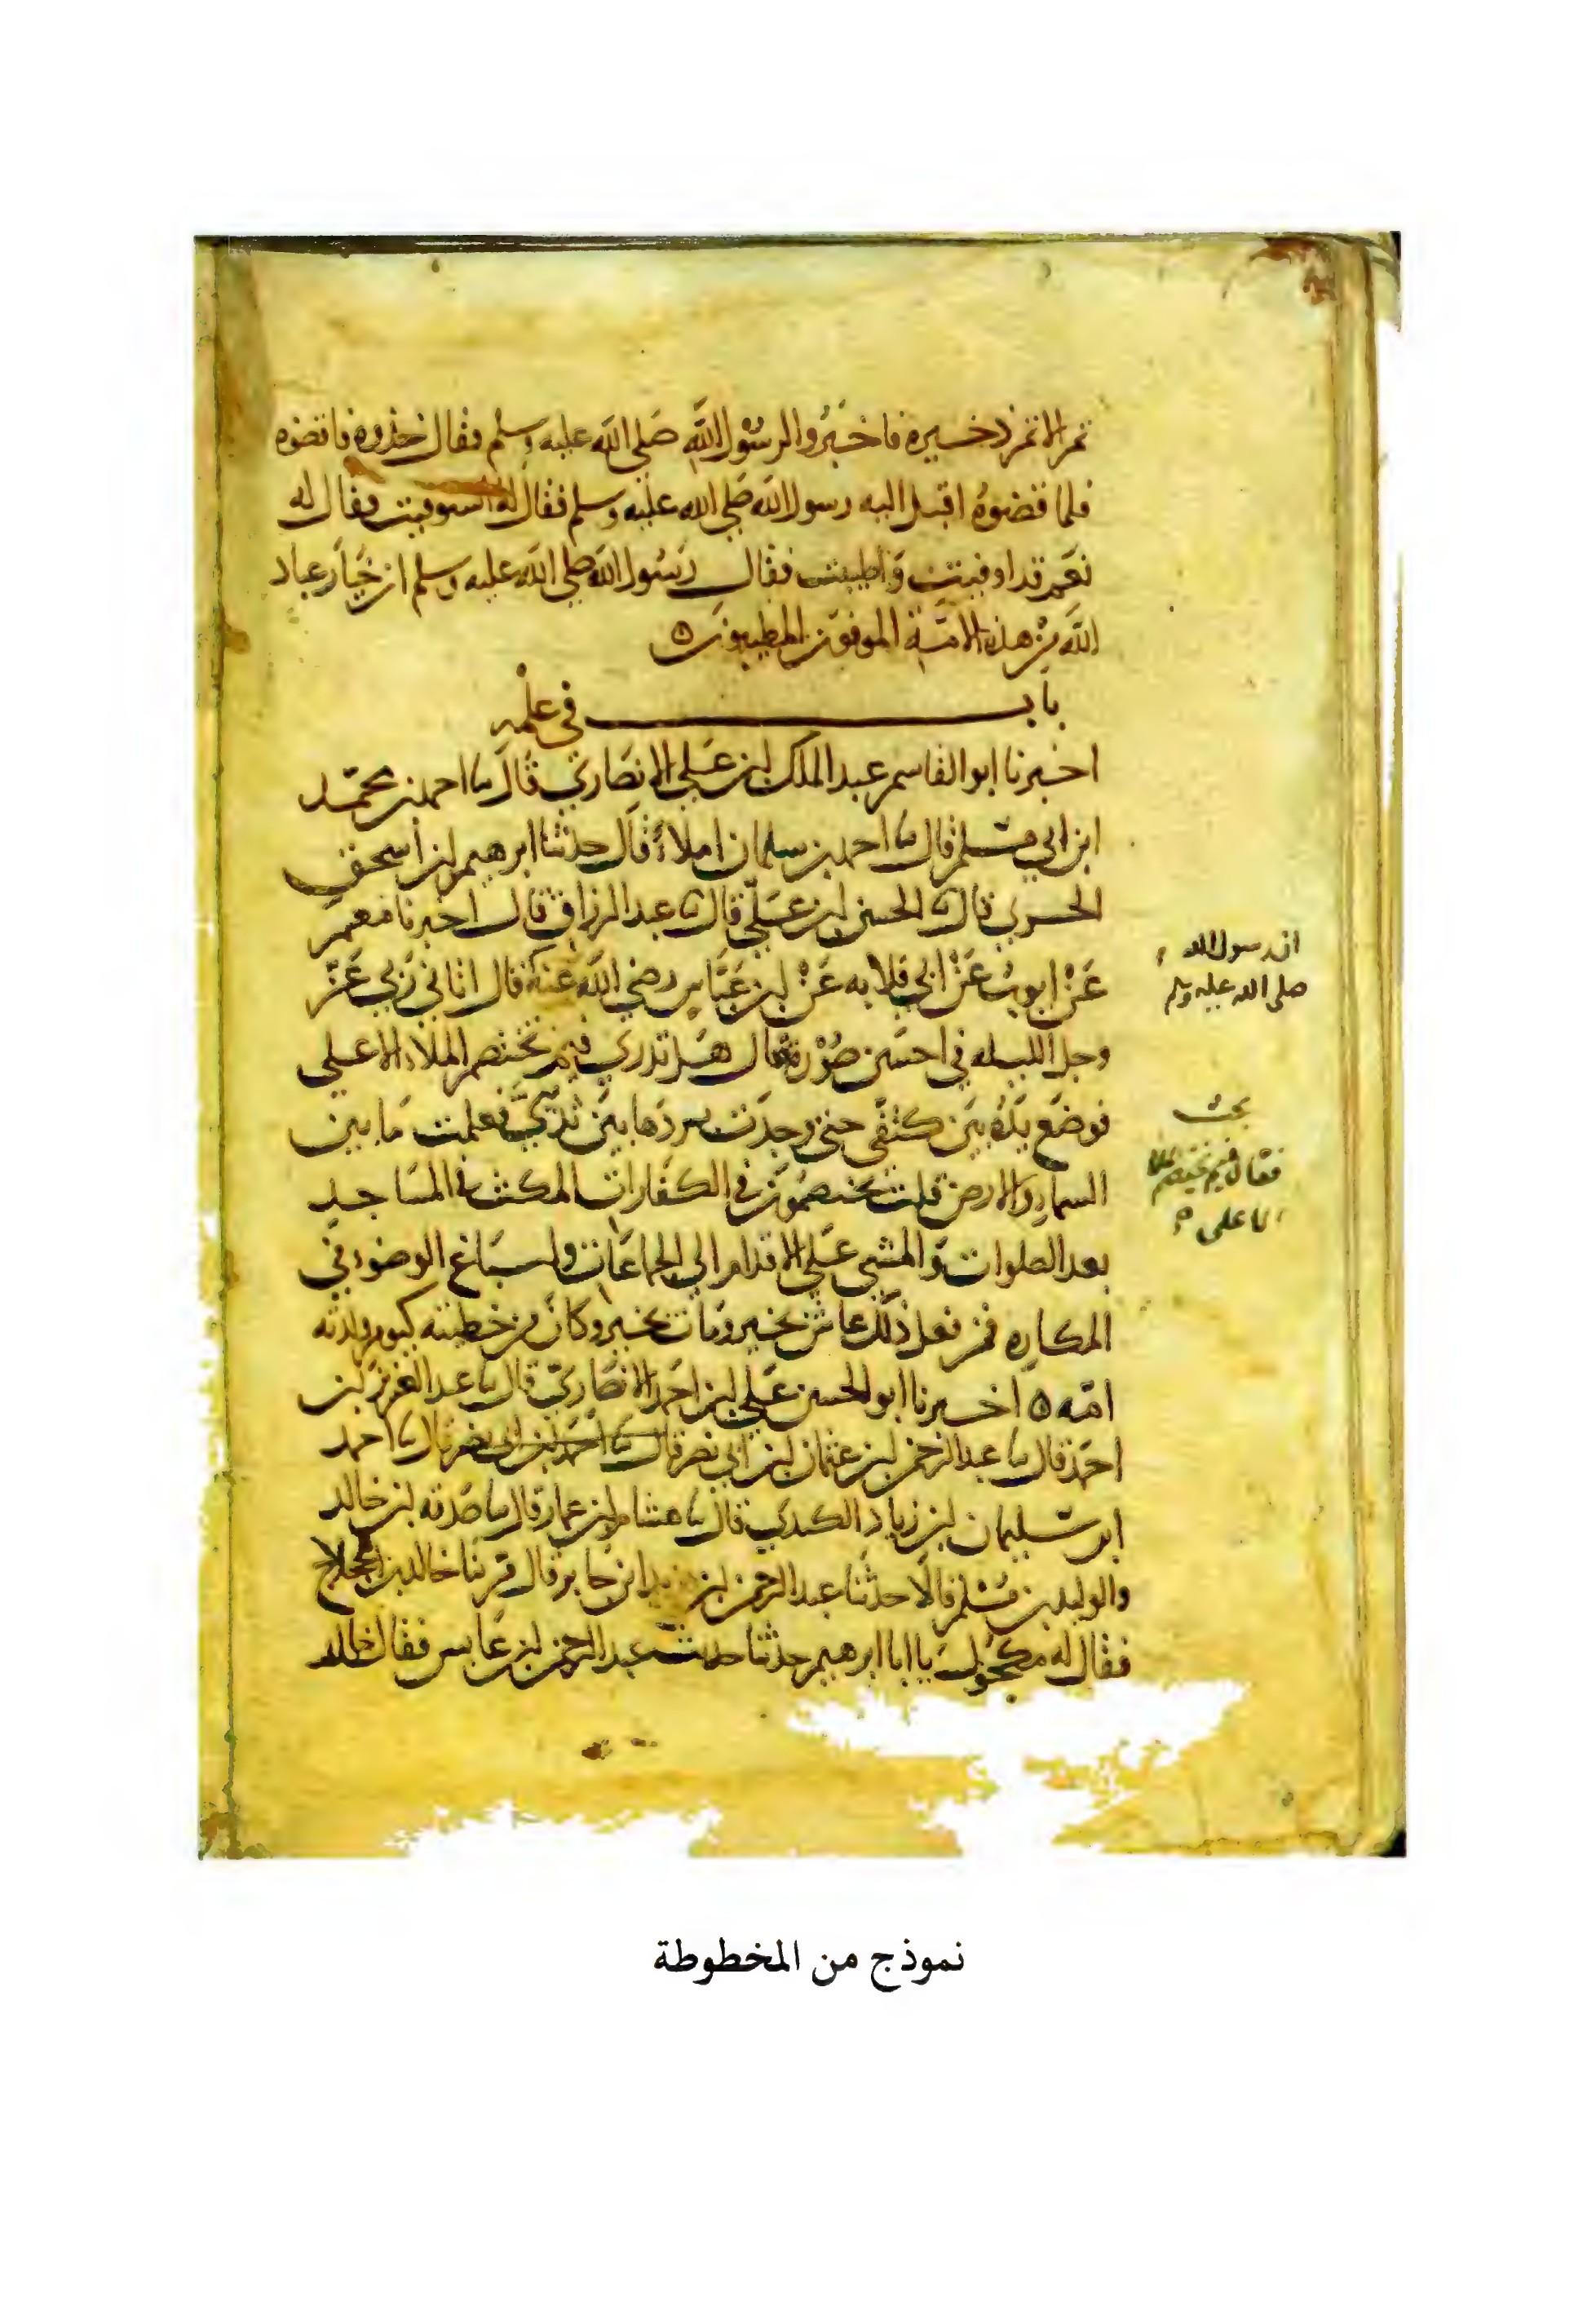 تمرا الا تمر ذخيرة فاخبروا لرسول الله صلى الله عليه وسلم فقال خذوه فاقضوه
فلما قضوه اقبل اليه رسول الله صلى الله عليه وسلم فقال له استوفيت فقال له
نعم قد اوفيت واطيبت فقال رسول الله صلى الله عليه وسلم ان خيار عباد
الله من هذه الامة الموفون المطيبون ه
باب في علمه
اخبرنا ابو القاسم عبد الملك ابن علي الانصاري قال نا احمد بن محمد
ابن ابي مسلم قال نا احمد بن سلمان املاءً قال حدثنا ابرهيم ابن اسحق
الحربي قال نا الحسن ابن علي قال نا عبد الرزاق قال اخبرنا معمر
عن ايوب عن ابي قلابه عن ابن عباس رضي الله عنه قال اتاني ربي عز
وجل الليله في احسن صورة قال هل تدري فيم تختصم الملاء الاعلى
فوضع يده بين كتفي حتى وجدت بردها بين ثديي فعلمت ما بين
السماء والارض قلت يختصمون في الكفارات المكث في المساجد
بعد الصلوات والمشي على الاقدام الى الجماعات واسباغ الوضوء في
المكاره فمن فعل ذلك عاش بخير ومات بخير وكان من خطيئته كيوم ولدته
امه ه اخبرنا ابو الحسن علي ابن احمد الانصاري قال نا عبد العزيز ابن
احمد قال نا عبد الرحمن ابن عثمان ابن ابي نصر قال نا احمد ابن ابي نصر قال نا احمد
ابن سليمان ابن زياد الكندي قال نا هشام ابن عمار قال نا صدقه ابن خالد
والوليد بن مسلم قالا حدثنا عبد الرحمن ابن يزيد ابن جابر قال مر بنا خالد بن اللجلاج
فقال له مكحول يا ابا ابرهيم حدثنا حديث عبد الرحمن ابن عابس فقال خالد
ان رسول الله
صلى الله عليه وسلم
فقال فيم يختصم الملا
الاعلى
نموذج من المخطوطة